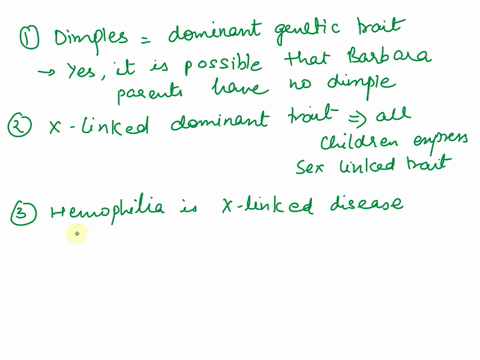 ① Dimples = dominant genetic trait
→ Yes, it is possible that Barbara
parents have no dimple
② X-linked dominant trait ⇒ all
children express
sex linked trait
③ Hemophilia is X-linked disease